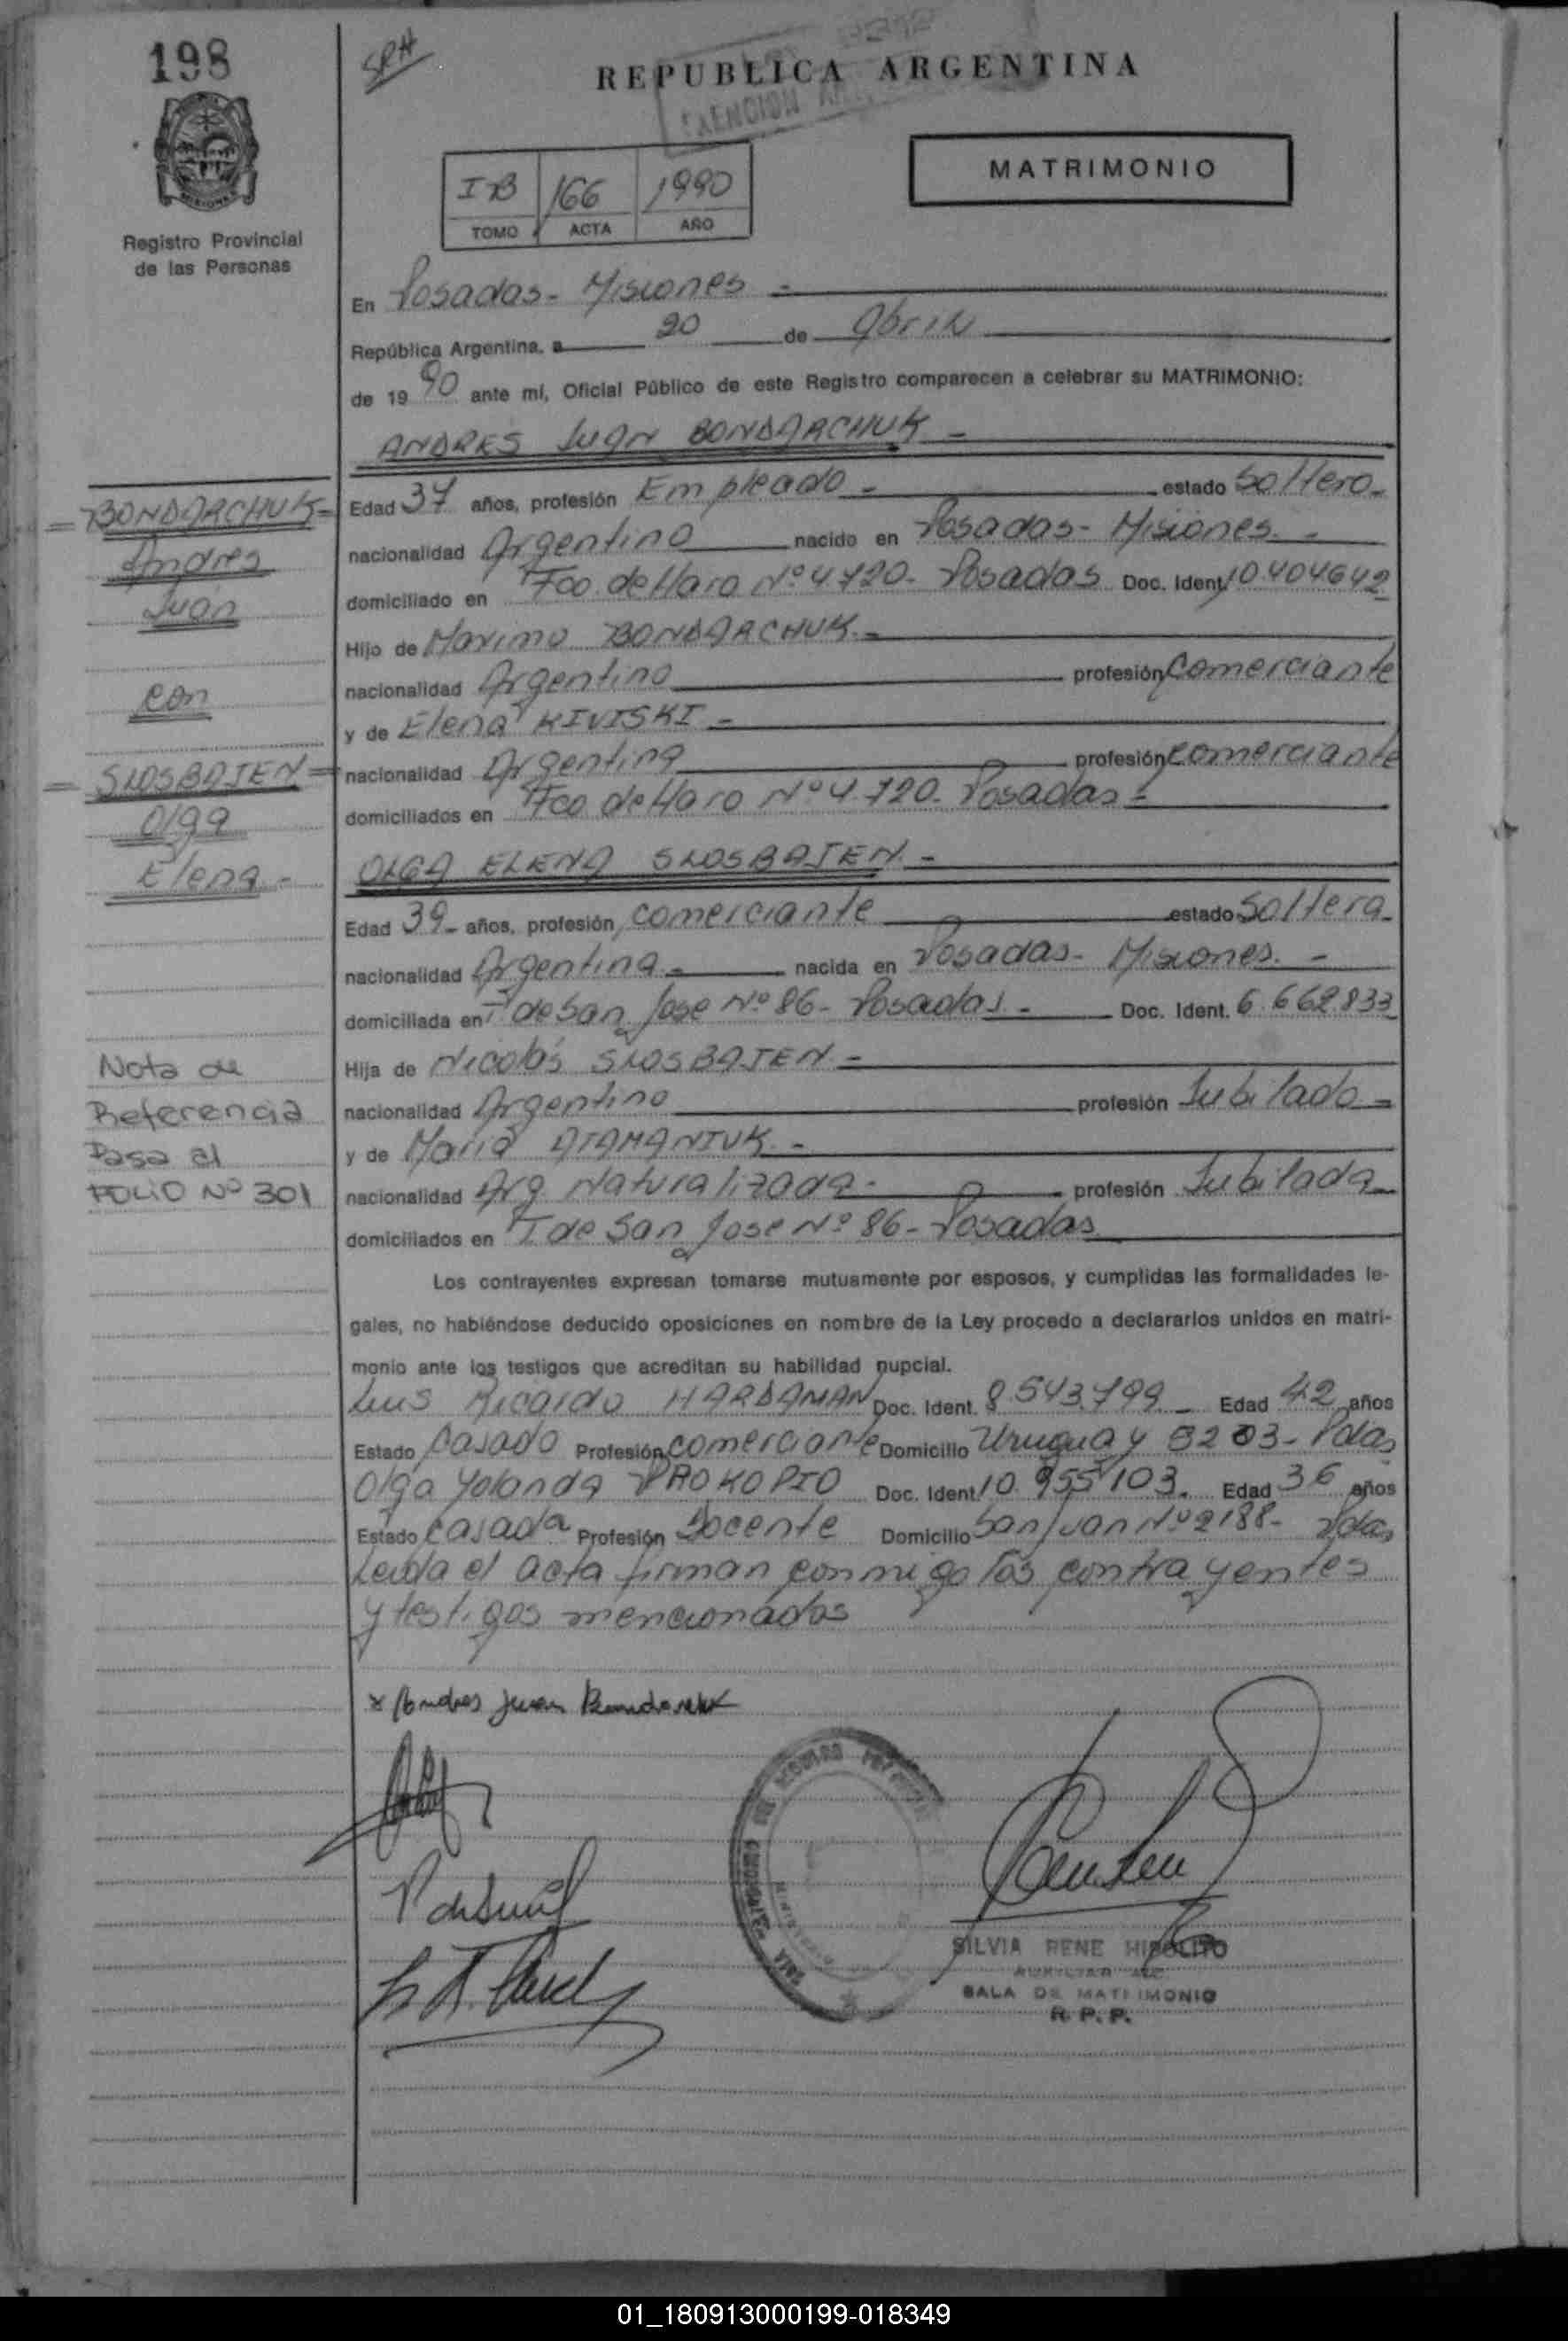 198
SRH
REPUBLICA ARGENTINA
EXENCION
MATRIMONIO
IB 166 1990
TOMO ACTA AÑO
Registro Provincial
de las Personas
En Posadas - Misiones -
República Argentina, a 20 de Abril
de 1990 ante mí, Oficial Público de este Registro comparecen a celebrar su MATRIMONIO:
ANDRES JUAN BONDARCHUK -
Edad 37 años, profesión Empleado - estado Soltero -
nacionalidad Argentino nacido en Posadas - Misiones. -
domiciliado en Fco. de Haro Nº 4.720 - Posadas Doc. Ident. 10.404642
Hijo de Maximo BONDARCHUK. -
nacionalidad Argentino profesión Comerciante
y de Elena KIVISKI -
nacionalidad Argentina profesión comerciante
domiciliados en Fco. de Haro Nº 4.720 - Posadas -
OLGA ELENA SLOSBAJEN. -
Edad 39 - años, profesión comerciante estado Soltera -
nacionalidad Argentina - nacida en Posadas - Misiones. -
domiciliada en T de San Jose Nº 86 - Posadas - Doc. Ident. 6.662.833
Hija de Nicolás SLOSBAJEN -
nacionalidad Argentino profesión Jubilado -
y de Maria ATAMANIUK -
nacionalidad Arg. Naturalizada - profesión Jubilada
domiciliados en T de San Jose Nº 86 - Posadas
Los contrayentes expresan tomarse mutuamente por esposos, y cumplidas las formalidades le-
gales, no habiéndose deducido oposiciones en nombre de la Ley procedo a declararlos unidos en matri-
monio ante los testigos que acreditan su habilidad nupcial.
Luis Ricardo HARDAMAN Doc. Ident. 8.543.799 - Edad 42 años
Estado Casado Profesión comerciante Domicilio Uruguay 5203 - Pdas
Olga Yolanda PROKOPIO Doc. Ident. 10.955103. Edad 36 años
Estado Casada Profesión Docente Domicilio San Juan Nº 2188 - Pdas
Leida el acta firman conmigo los contrayentes
y testigos mencionados
x Andres Juan Bondarchuk
SILVIA RENE HIPOLITO
SALA DE MATRIMONIO
R. P. P.
= BONDARCHUK =
Andres
Juan
con
= SLOSBAJEN =
Olga
Elena -
Nota de
Referencia
Pasa al
FOLIO Nº 301
01_180913000199-018349